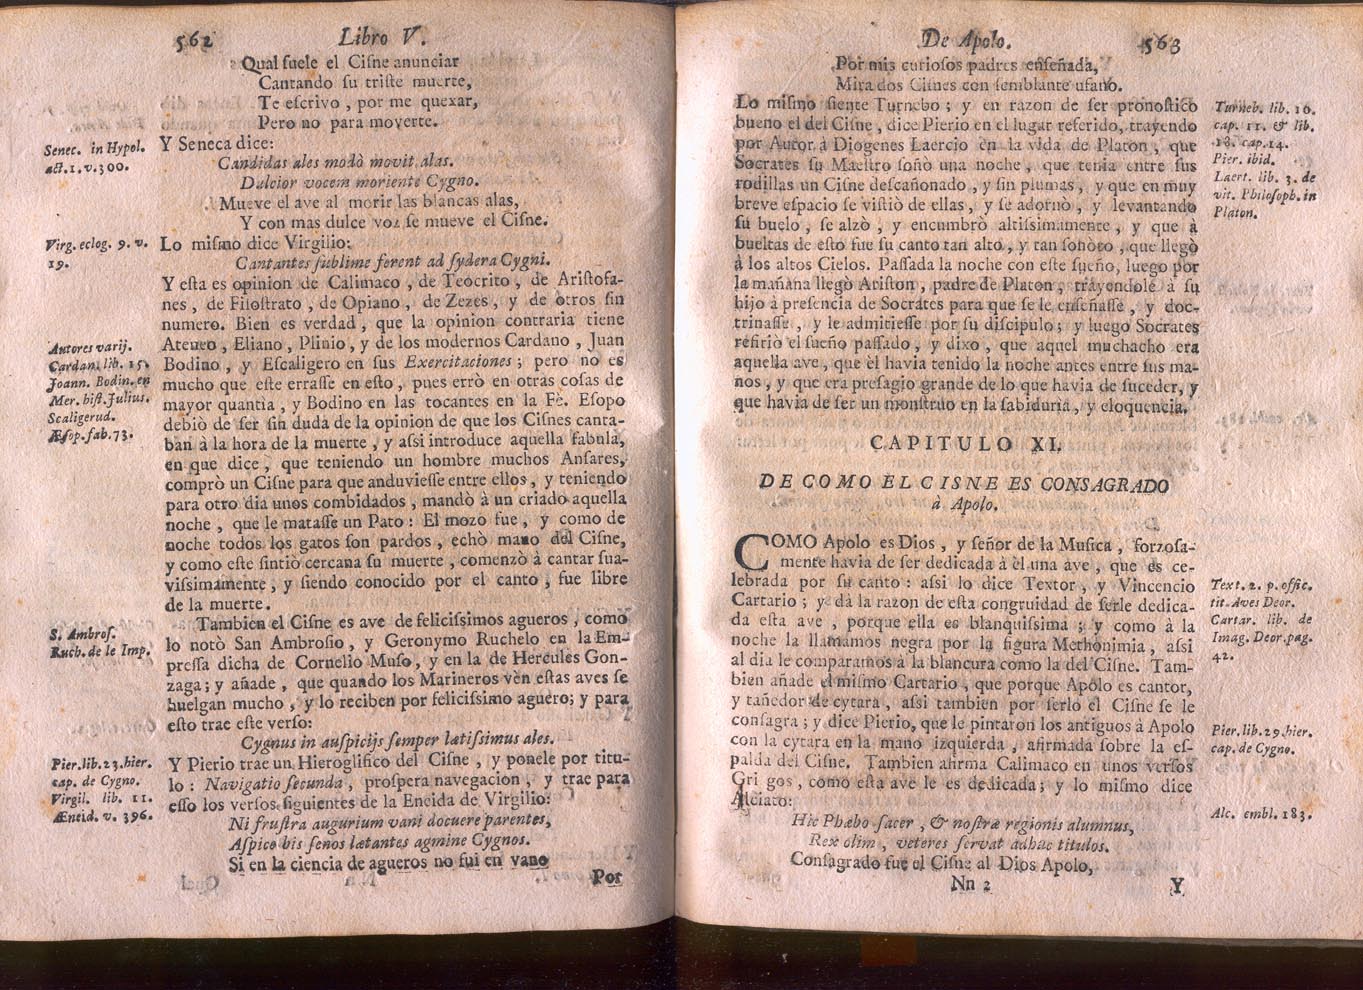 562 Libro V.
Qual suele el Cisne anunciar
Cantando su triste muerte,
Te escrivo, por me quexar,
Pero no para moverte.
Y Seneca dice:
Senec. in Hypol.
act. 1. v. 300.
Candidas ales modò movit alas.
Dulcior vocem moriente Cygno.
Mueve el ave al morir las blancas alas,
Y con mas dulce voz se mueve el Cisne.
Lo mismo dice Virgilio:
Virg. eclog. 9. v.
19.
Cantantes sublime ferent ad sydera Cygni.
Y esta es opinion de Calimaco, de Teocrito, de Aristofa-
nes, de Filostrato, de Opiano, de Zezes, y de otros sin
numero. Bien es verdad, que la opinion contraria tiene
Ateneo, Eliano, Plinio, y de los modernos Cardano, Juan
Bodino, y Escaligero en sus Exercitaciones; pero no es
mucho que este errasse en esto, pues errò en otras cosas de
mayor quantìa, y Bodino en las tocantes en la Fè. Esopo
Autores varij.
Cardan. lib. 15.
Joann. Bodin. en
Mer. hist. Julius.
Scaligerud.
Æsop. fab. 73.
debiò de ser sin duda de la opinion de que los Cisnes canta-
ban à la hora de la muerte, y assi introduce aquella fabula,
en que dice, que teniendo un hombre muchos Ansares,
comprò un Cisne para que anduviesse entre ellos, y teniendo
para otro dia unos combidados, mandò à un criado aquella
noche, que le matasse un Pato: El mozo fue, y como de
noche todos los gatos son pardos, echò mano del Cisne,
y como este sintiò cercana su muerte, comenzò à cantar sua-
vissimamente, y siendo conocido por el canto, fue libre
de la muerte.
Tambien el Cisne es ave de felicissimos agueros, como
lo notò San Ambrosio, y Geronymo Ruchelo en la Em-
S. Ambros.
Ruch. de le Imp.
pressa dicha de Cornelio Muso, y en la de Hercules Gon-
zaga; y añade, que quando los Marineros vèn estas aves se
huelgan mucho, y lo reciben por felicissimo aguero; y para
esto trae este verso:
Cygnus in auspicijs semper lætissimus ales.
Y Pierio trae un Hieroglifico del Cisne, y ponele por titu-
lo: Navigatio secunda, prospera navegacion, y trae para
esso los versos siguientes de la Eneida de Virgilio:
Pier. lib. 23. hier.
cap. de Cygno.
Virgil. lib. 11.
Æneid. v. 396.
Ni frustra augurium vani docuere parentes,
Aspice bis senos lætantes agmine Cygnos.
Si en la ciencia de agueros no fui en vano
Por
De Apolo. 563
Por mis curiosos padres enseñada,
Mira dos Cisnes con semblante ufano.
Lo mismo siente Turnebo; y en razon de ser pronostico
bueno el del Cisne, dice Pierio en el lugar referido, trayendo
por Autor à Diogenes Laercio en la vida de Platon, que
Socrates su Maestro soñò una noche, que tenia entre sus
rodillas un Cisne descañonado, y sin plumas, y que en muy
breve espacio se vistiò de ellas, y se adornò, y levantando
Turneb. lib. 10.
cap. 11. & lib.
18. cap. 14.
Pier. ibid.
Laert. lib. 3. de
vit. Philosoph. in
Platon.
su buelo, se alzò, y encumbrò altissimamente, y que à
bueltas de esto fue su canto tan alto, y tan sonoro, que llegò
à los altos Cielos. Passada la noche con este sueño, luego por
la mañana llegò Ariston, padre de Platon, trayendole à su
hijo à presencia de Socrates para que se le enseñasse, y doc-
trinasse, y le admitiesse por su discipulo; y luego Socrates
refiriò el sueño passado, y dixo, que aquel muchacho era
aquella ave, que èl havia tenido la noche antes entre sus ma-
nos, y que era presagio grande de lo que havia de suceder, y
que havia de ser un monstruo en la sabiduria, y eloquencia.
CAPITULO XI.
DE COMO EL CISNE ES CONSAGRADO
à Apolo.
COMO Apolo es Dios, y señor de la Musica, forzosa-
mente havia de ser dedicada à èl una ave, que es ce-
lebrada por su canto: assi lo dice Textor, y Vincencio
Cartario; y dà la razon de esta congruidad de serle dedica-
da esta ave, porque ella es blanquissima; y como à la
noche la llamamos negra por la figura Methonimia, assi
al dia le comparamos à la blancura como la del Cisne. Tam-
Text. 2. p. offic.
tit. Aves Deor.
Cartar. lib. de
Imag. Deor. pag.
42.
bien añade el mismo Cartario, que porque Apolo es cantor,
y tañedor de cytara, assi tambien por serlo el Cisne se le
consagra; y dice Pierio, que le pintaron los antiguos à Apolo
con la cytara en la mano izquierda, afirmada sobre la es-
Pier. lib. 29. hier.
cap. de Cygno.
palda del Cisne. Tambien afirma Calimaco en unos versos
Gri gos, como esta ave le es dedicada; y lo mismo dice
Alciato:
Alc. embl. 183.
Hic Phæbo sacer, & nostræ regionis alumnus,
Rex olim, veteres servat adhuc titulos.
Consagrado fue el Cisne al Dios Apolo,
Nn 2 Y